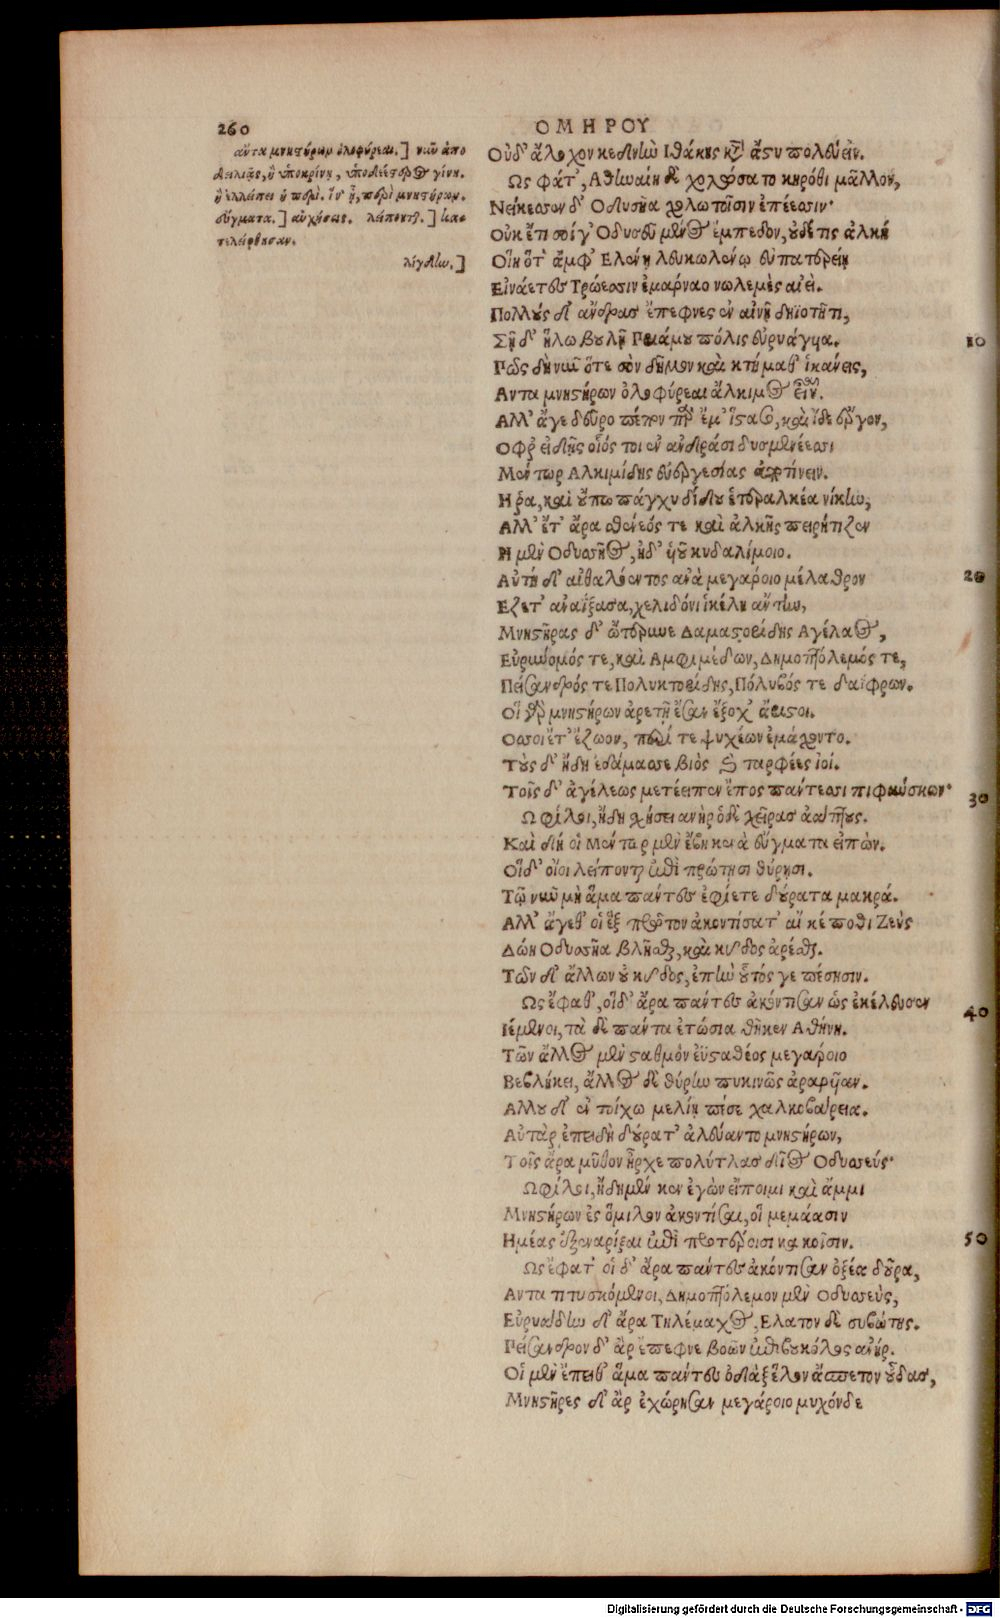 260
ΟΜΗΡΟΥ
ἄντα μνηστήρων ὀλοφύρεαι.] νῦν ἀπο
δειλιᾷς, ἢ ὑποκρίνῃ, ὑποδεέστερος γίνῃ.
ἢ ἐλλείπει ἡ περὶ. ἵν' ᾖ, περὶ μνηστήρων.
εὔγματα.] αὐχήσεις. λείπονται.] κα
τελείφθησαν.
λίγδην.]
Οὐδ' ἄλοχον κεδνὴν Ιθάκης κατὰ ἄστυ πολεύειν.
Ως φάτ', Αθηναίη δὲ χολώσατο κηρόθι μᾶλλον,
Νείκεσσεν δ' Οδυσῆα χολωτοῖσιν ἐπέεσσιν·
Οὐκ ἔτι σοίγ' Οδυσεῦ μένος ἔμπεδον, οὐδέ τις ἀλκή
Οἵη ὅτ' ἀμφ' Ελένῃ λευκωλένῳ εὐπατερείῃ
Εἰνάετες Τρώεσσιν ἐμάρναο νωλεμὲς αἰεί.
Πολλοὺς δ' ἄνδρας ἔπεφνες ἐν αἰνῇ δηϊοτῆτι,
Σῇ δ' ἥλω βουλῇ Πριάμου πόλις εὐρυάγυια.
10
Πῶς δὴ νῦν ὅτε σὸν δῆμον καὶ κτήμαθ' ἱκάνεις,
Αντα μνηστήρων ὀλοφύρεαι ἄλκιμος εἶναι.
Αλλ' ἄγε δεῦρο πέπον παρ' ἔμ' ἵστασο, καὶ ἴδε ἔργον,
Οφρ' εἰδῇς οἷός τοι ἐν ἀνδράσι δυσμενέεσσι
Μέντωρ Αλκιμίδης εὐεργεσίας ἀποτίνειν.
Η ῥα, καὶ οὔπω πάγχυ δίδου ἑτεραλκέα νίκην,
Αλλ' ἔτ' ἄρα σθένεός τε καὶ ἀλκῆς πειρήτιζεν
Η μὲν Οδυσσῆος, ἠδ' υἱοῦ κυδαλίμοιο.
Αὐτὴ δ' αἰθαλόεντος ἀνὰ μεγάροιο μέλαθρον
20
Εζετ' ἀναΐξασα, χελιδόνι ἰκέλη ἄντην,
Μνηστῆρας δ' ὤτρυνε Δαμαστορίδης Αγέλαος,
Εὐρυνομός τε, καὶ Αμφιμέδων, Δημοπτόλεμός τε,
Πείσανδρός τε Πολυκτορίδης, Πόλυβός τε δαΐφρων.
Οἳ γὰρ μνηστήρων ἀρετῇ ἔσαν ἔξοχ' ἄριστοι.
Οσσοι ἔτ' ἔζωον, περί τε ψυχέων ἐμάχοντο.
Τοὺς δ' ἤδη ἐδάμασσε βιὸς καὶ ταρφέες ἰοί.
Τοῖς δ' ἀγέλεως μετέειπεν ἔπος πάντεσσι πιφαύσκων·
30
Ω φίλοι, ἤδη σχήσει ἀνὴρ ὅδε χεῖρας ἀάπτους.
Καὶ δή οἱ Μέντωρ μὲν ἔβη κενὰ εὔγματα εἰπών.
Οἳ δ' οἶοι λείπονται ἐπὶ πρώτησι θύρῃσι.
Τῷ νῦν μὴ ἅμα πάντες ἐφίετε δούρατα μακρά.
Αλλ' ἄγεθ' οἱ ἓξ πρῶτον ἀκοντίσατ' αἴ κέ ποθι Ζεὺς
Δώῃ Οδυσσῆα βλῆσθαι, καὶ κῦδος ἀρέσθαι.
Τῶν δ' ἄλλων οὐ κῦδος, ἐπὴν οὗτός γε πέσῃσιν.
Ως ἔφαθ', οἳ δ' ἄρα πάντες ἀκόντισαν ὡς ἐκέλευσεν
40
Ιέμενοι, τὰ δὲ πάντα ἐτώσια θῆκεν Αθήνη.
Τῶν ἄλλος μὲν σταθμὸν ἐϋσταθέος μεγάροιο
Βεβλήκει, ἄλλος δὲ θύρην πυκινῶς ἀραρυῖαν.
Αλλου δ' ἐν τοίχῳ μελίη πέσε χαλκοβάρεια.
Αὐτὰρ ἐπειδὴ δούρατ' ἀλεύαντο μνηστήρων,
Τοῖς ἄρα μῦθον ἦρχε πολύτλας δῖος Οδυσσεύς·
Ω φίλοι, ἤδη μέν κεν ἐγὼν εἴποιμι καὶ ἄμμι
Μνηστήρων ἐς ὅμιλον ἀκοντίσαι, οἳ μεμάασιν
Ημέας ἐξεναρίξαι ἐπὶ προτέροισι κακοῖσιν.
50
Ως ἔφατ' οἱ δ' ἄρα πάντες ἀκόντισαν ὀξέα δοῦρα,
Αντα πτυσκόμενοι, Δημοπτόλεμον μὲν Οδυσσεὺς,
Εὐρυάδην δ' ἄρα Τηλέμαχος, Ελατον δὲ συβώτης.
Πείσανδρον δ' ἄρ ἔπεφνε βοῶν ἐπιβουκόλος ἀνήρ.
Οἱ μὲν ἔπειθ' ἅμα πάντες ὀδὰξ ἕλον ἄσπετον οὖδας,
Μνηστῆρες δ' ἄρ ἐχώρησαν μεγάροιο μυχόνδε
Digitalisierung gefördert durch die Deutsche Forschungsgemeinschaft - DFG